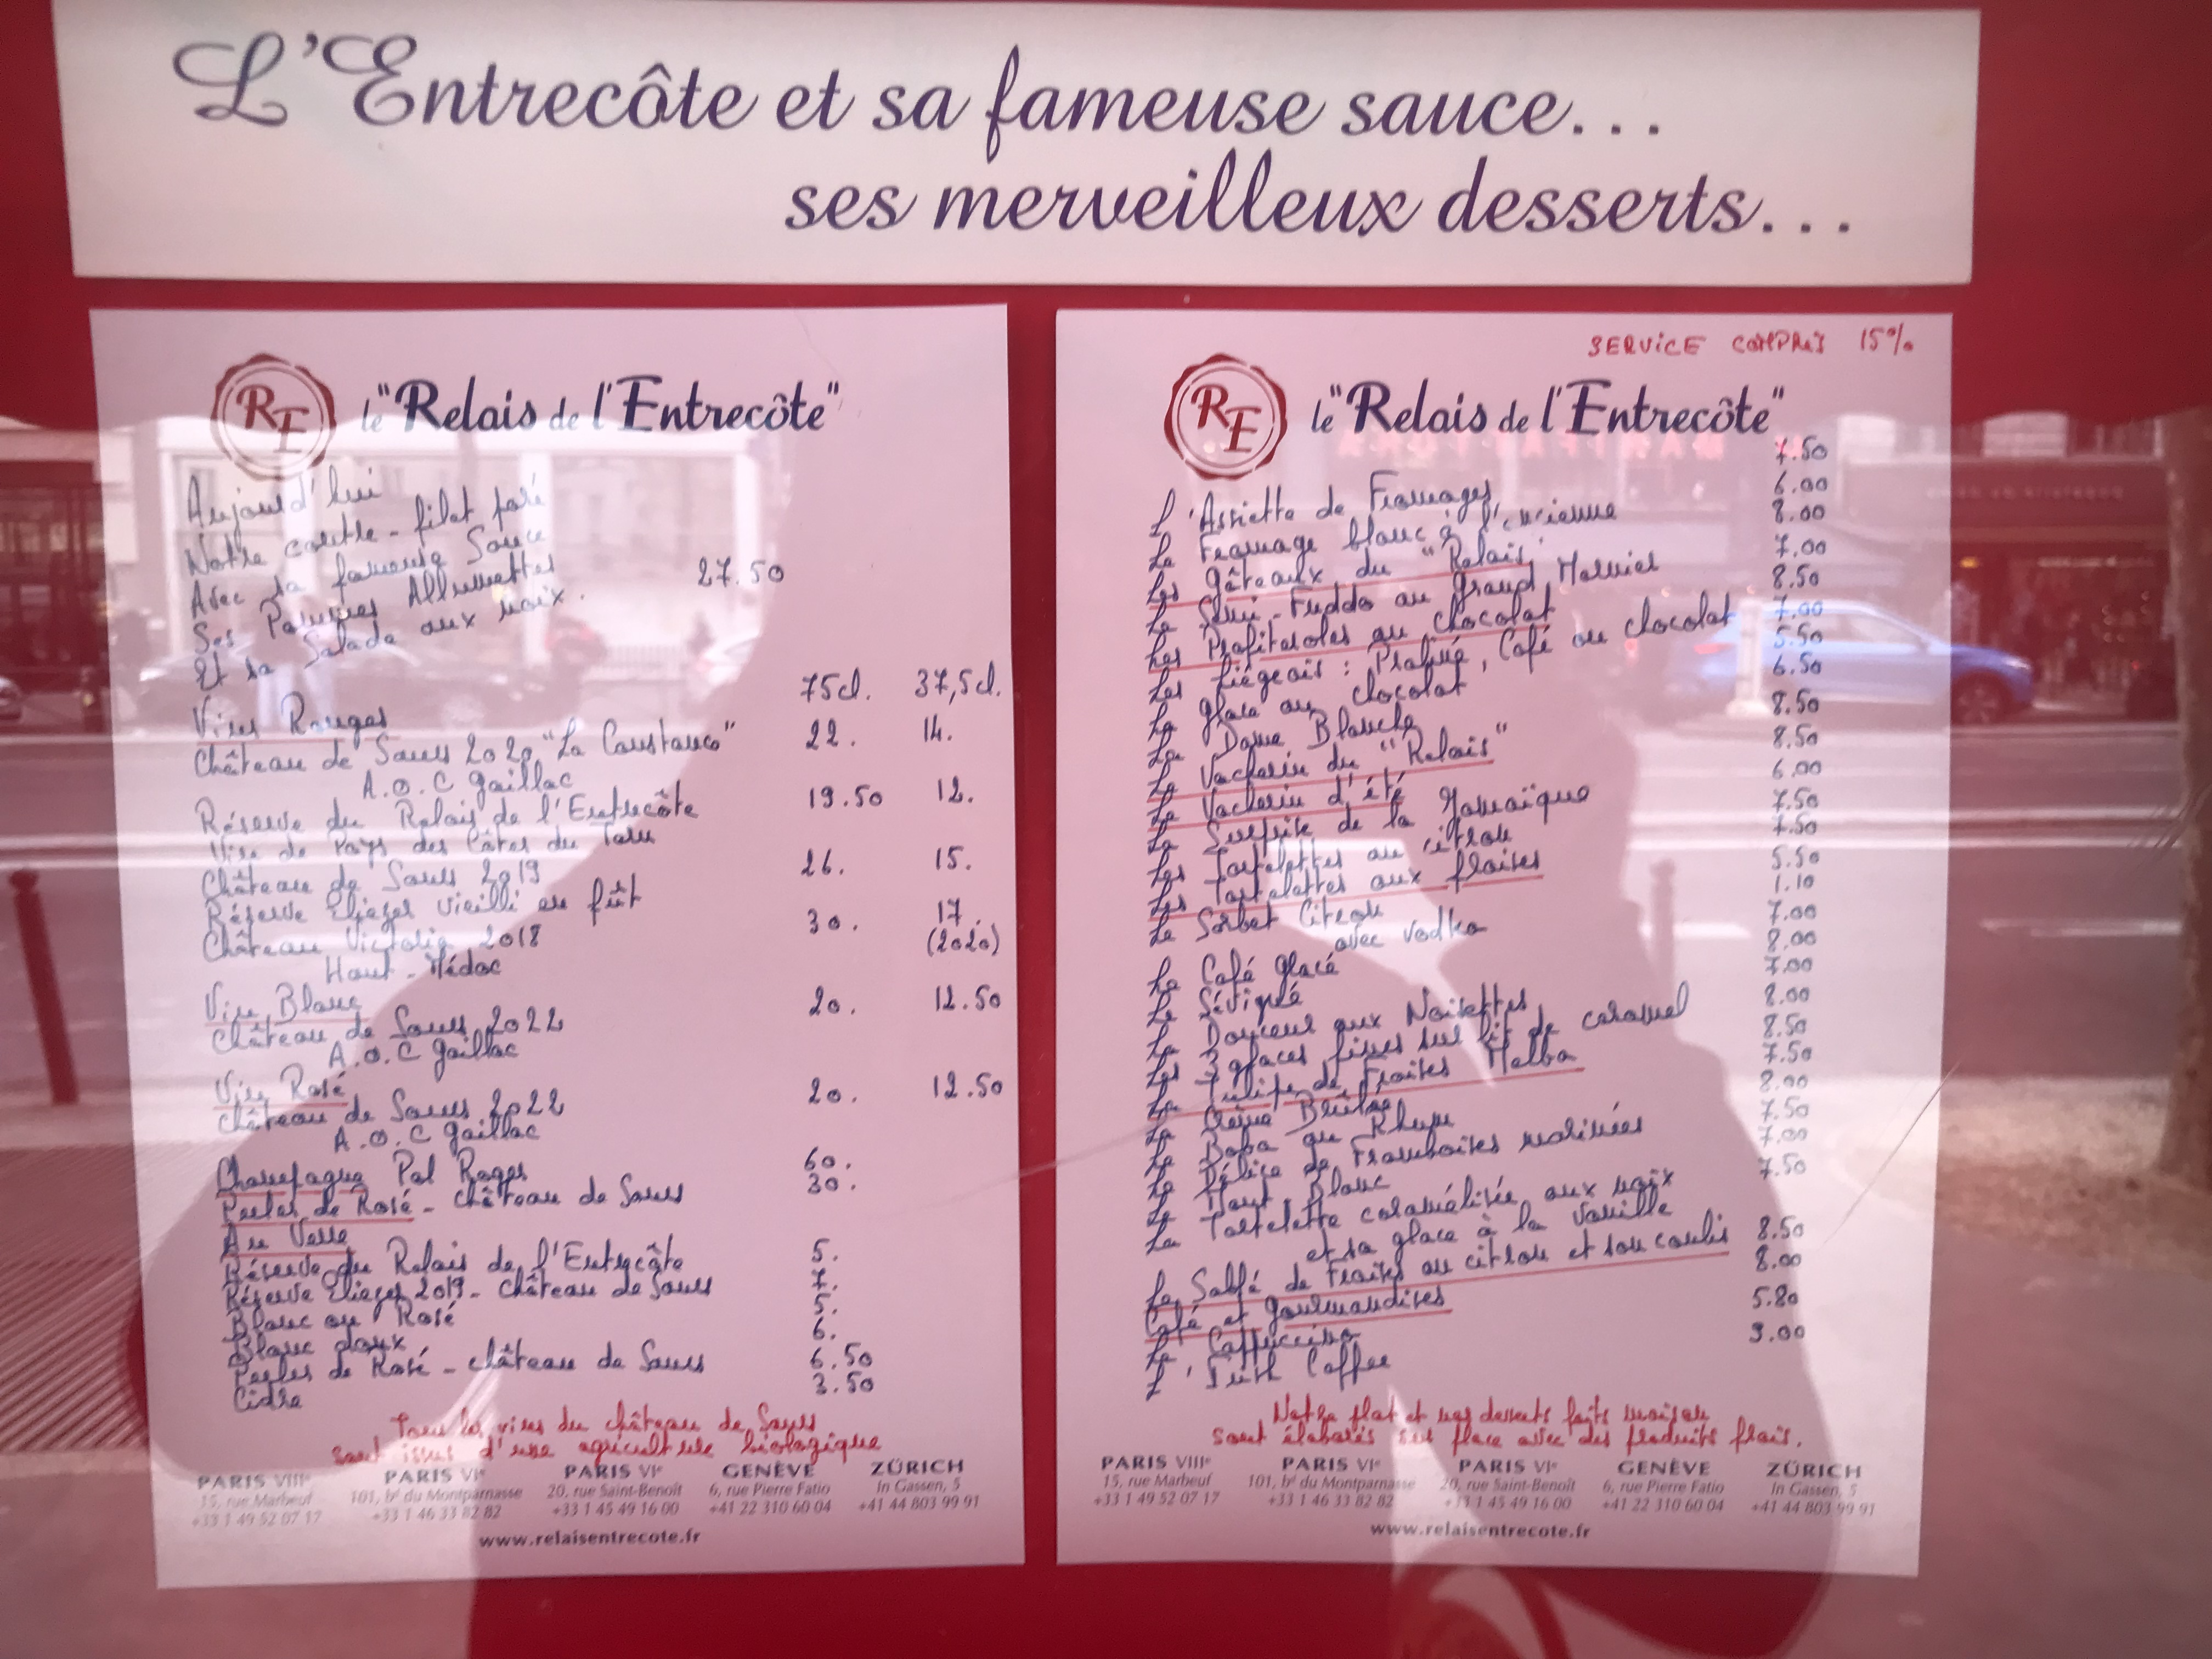 L'Entrecôte et sa fameuse sauce...
ses merveilleux desserts...
le "Relais de l'Entrecôte"
RE
Aujourd'hui
Notre contre-filet paré
Avec sa fameuse Sauce
Ses Pommes Allumettes
Et sa Salade aux noix. 27.50
75cl. 37,5cl.
Vins Rouges
Château de Saurs 2020 "La Constance" 22. 14.
A.O.C Gaillac
Réserve du Relais de l'Entrecôte 19.50 12.
Vin de Pays des Côtes du Tarn
Château de Saurs 2019 26. 15.
Réserve Eliezer vieilli en fût
Château Victoria 2018 30. 17
Haut-Médoc (2020)
Vin Blanc
Château de Saurs 2022 20. 12.50
A.O.C Gaillac
Vin Rosé
Château de Saurs 2022 20. 12.50
A.O.C Gaillac
Champagne Pol Roger 60.
Perles de Rosé - Château de Saurs 30.
Au Verre
Réserve du Relais de l'Entrecôte 5.
Réserve Eliezer 2019 - Château de Saurs 7.
Blanc ou Rosé 5.
Blanc doux 6.
Perles de Rosé - château de Saurs 6.50
Cidre 3.50
Tous les vins du château de Saurs
sont issus d'une agriculture biologique
PARIS VIIIe PARIS VIe PARIS VIe GENÈVE ZÜRICH
15, rue Marbeuf 101, bd du Montparnasse 20, rue Saint-Benoît 6, rue Pierre Fatio In Gassen, 5
+33 1 49 52 07 17 +33 1 46 33 82 82 +33 1 45 49 16 00 +41 22 310 60 04 +41 44 803 99 91
www.relaisentrecote.fr
SERVICE COMPRIS 15%
RE
le "Relais de l'Entrecôte"
L'Assiette de Fromages 7.50
Le Fromage blanc à l'ancienne 6.00
Les Gâteaux du "Relais" 8.00
Le Semi-Freddo au Grand Marnier 7.00
Les Profiteroles au chocolat 8.50
Les Liégeois : Praliné, Café ou chocolat 7.00
La glace au chocolat 5.50
La Dame Blanche 6.50
Le Vacherin du "Relais" 8.50
Le Vacherin d'été 8.50
La Surprise de la Jamaïque 6.00
Les Tartelettes au citron 7.50
Les Tartelettes aux fraises 7.50
Le Sorbet Citron 5.50
avec vodka 1.10
Le Café Glacé 7.00
Le Sévigné 8.00
La Douceur aux Noisettes 7.00
Les 3 glaces fines sur lit de caramel 8.00
La Tulipe de Fraises Melba 8.50
La Crème Brûlée 7.50
Le Baba au Rhum 8.00
Le Délice de Framboises meringuées 7.50
Le Mont Blanc 7.00
La Tartelette caramélisée aux noix 7.50
et sa glace à la vanille
Le Sablé de Fraises au citron et son coulis 8.50
Café et Gourmandises 8.00
Le Cappuccino 5.80
L'Irish Coffee 9.00
Notre plat et nos desserts faits maison
sont élaborés sur place avec des produits frais.
PARIS VIIIe PARIS VIe PARIS VIe GENÈVE ZÜRICH
15, rue Marbeuf 101, bd du Montparnasse 20, rue Saint-Benoît 6, rue Pierre Fatio In Gassen, 5
+33 1 49 52 07 17 +33 1 46 33 82 82 +33 1 45 49 16 00 +41 22 310 60 04 +41 44 803 99 91
www.relaisentrecote.fr